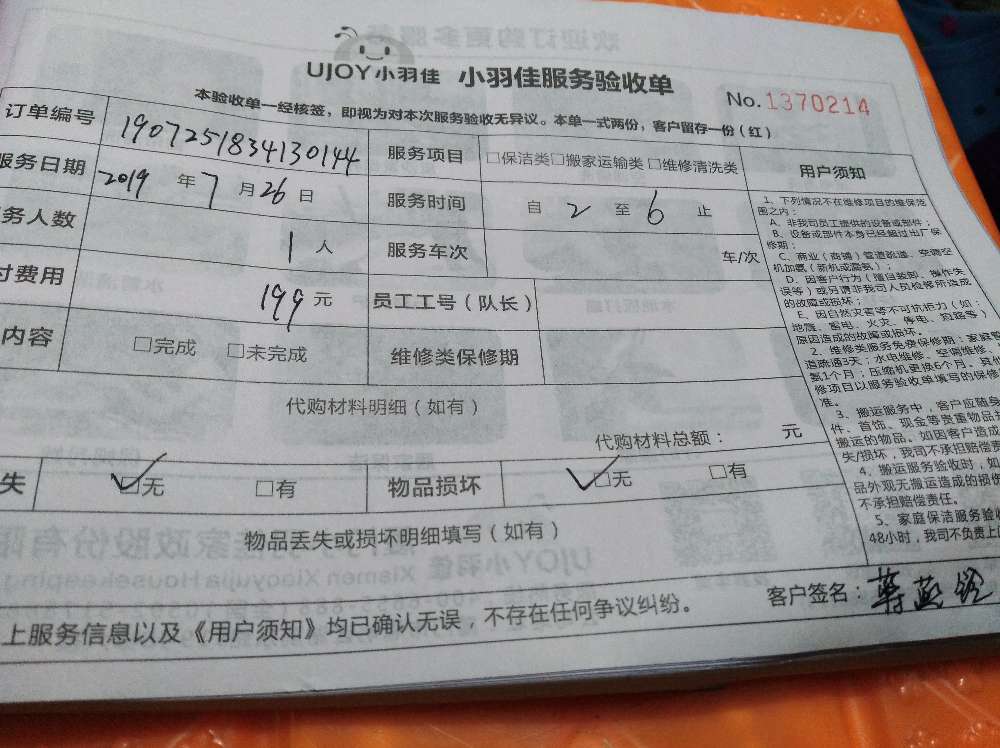 UJOY小羽佳 小羽佳服务验收单
No.1370214
本验收单一经核签，即视为对本次服务验收无异议。本单一式两份，客户留存一份（红）
订单编号 1907251834130144 服务项目 □保洁类□搬家运输类□维修清洗类 用户须知
服务日期 2019 年 7 月 26 日 服务时间 自 2 至 6 止
务人数 1 人 服务车次 车/次
付费用 199 元 员工工号（队长）
内容 □完成 □未完成 维修类保修期
代购材料明细（如有）
代购材料总额： 元
失 ☑无 □有 物品损坏 ☑无 □有
物品丢失或损坏明细填写（如有）
上服务信息以及《用户须知》均已确认无误，不存在任何争议纠纷。
客户签名：
1、下列情况不在维修项目的维保范
围之内：
A、非我司员工提供的设备或部件；
B、设备或部件本身已经超过出厂保
修期；
C、商业（商铺）管道疏通、空调空
机加氨（新机或漏氨）；
D、因客户行为（擅自装卸、操作失
误等）或另请非我司人员检修所造成
的故障或损坏；
E、因自然灾害等不可抗拒力（如：
地震、雷电、火灾、停电、
原因造成的故障或损坏。
2、维修类服务免费保修期：家庭管
道疏通3天；水电维修、空调维修、
氨1个月；压缩机更换6个月。其他
修项目以服务验收单填写的保修
准。
3、搬运服务中，客户应随身
件、首饰、现金等贵重物品
搬运的物品。如因客户造成
失/损坏，我司不承担赔偿责
4、搬运服务验收时，如
品外观无搬运造成的损伤
不承担赔偿责任。
5、家庭保洁服务验收
48小时，我司不负责上